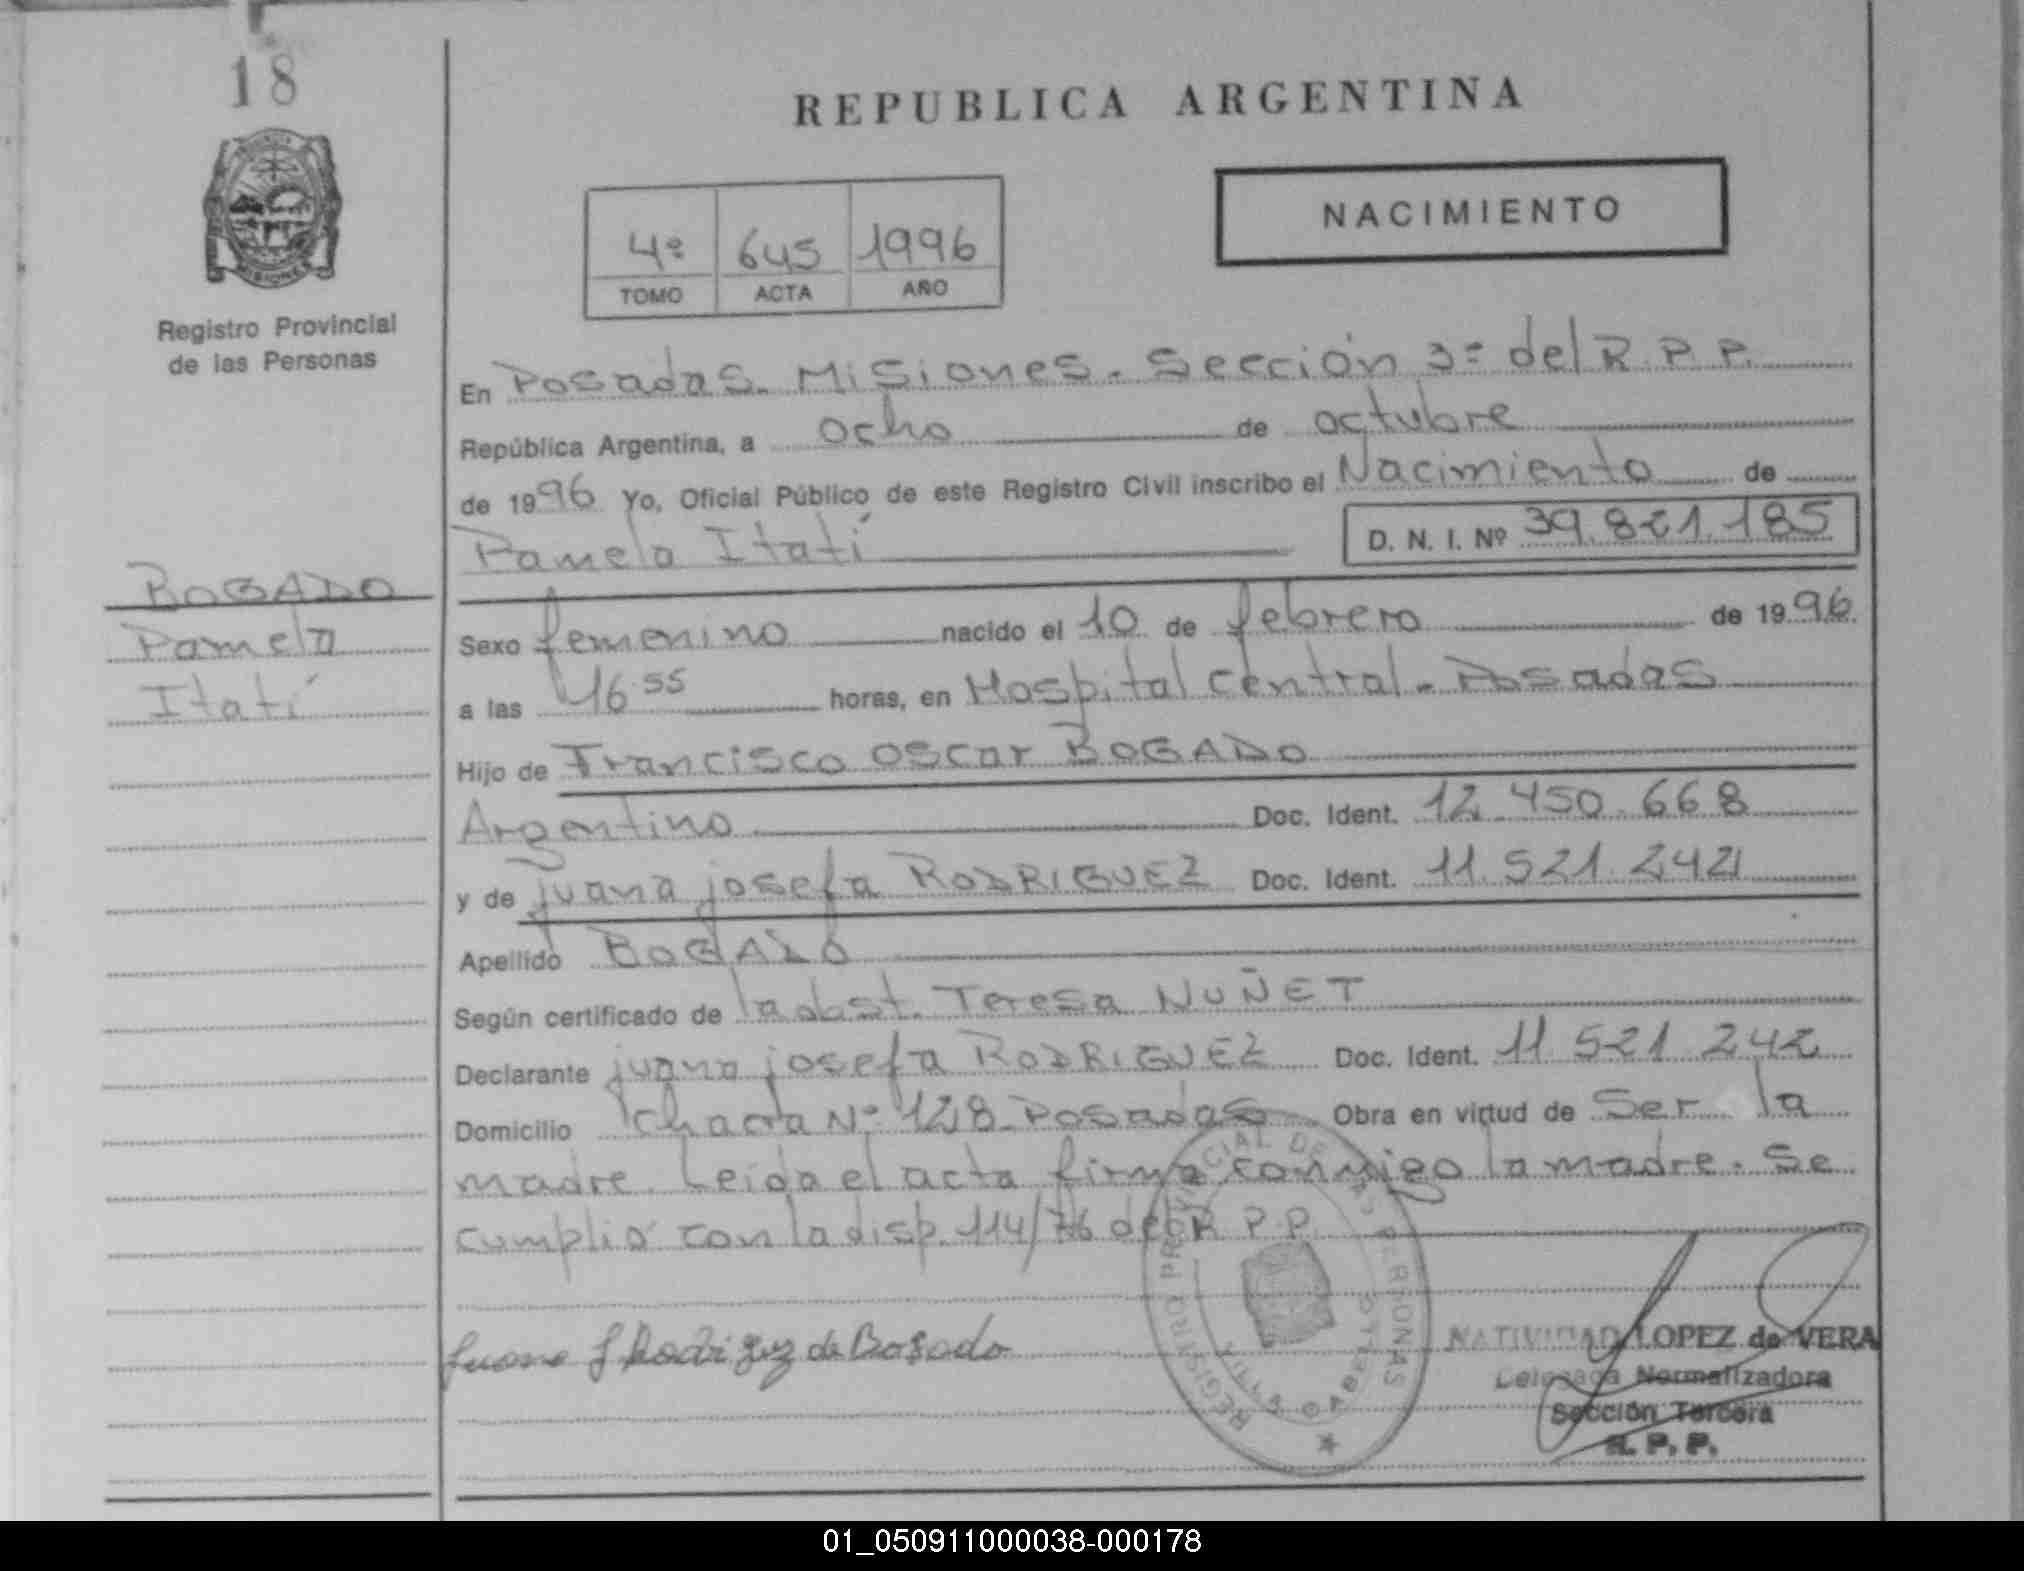 18
REPUBLICA ARGENTINA
NACIMIENTO
4º 645 1996
TOMO ACTA AÑO
MISIONES
Registro Provincial
de las Personas
En Posadas. Misiones. Sección 3º del R.P.P.
República Argentina, a ocho de octubre
de 1996 Yo, Oficial Público de este Registro Civil inscribo el Nacimiento de
Pamela Itatí D. N. I. Nº 39.821.185
BOGADO
Pamela
Itatí
Sexo femenino nacido el 10 de febrero de 1996.
a las 16.55 horas, en Hospital Central. Posadas
Hijo de Francisco Oscar BOGADO
Argentino Doc. Ident. 12.450.668
y de juana josefa RODRIGUEZ Doc. Ident. 11.521.242
Apellido BOGADO
Según certificado de la obst. Teresa NUÑET
Declarante juana josefa RODRIGUEZ Doc. Ident. 11.521.242
Domicilio Chacra Nº 128. Posadas Obra en virtud de Ser la
madre. Leída el acta firma conmigo la madre. Se
cumplió con la disp. 114/76 del R.P.P.
REGISTRO PROVINCIAL DE LAS PERSONAS
Juana J Rodriguez de Bogado
NATIVIDAD LOPEZ de VERA
Delegada Normalizadora
Sección Tercera
R. P. P.
01_050911000038-000178